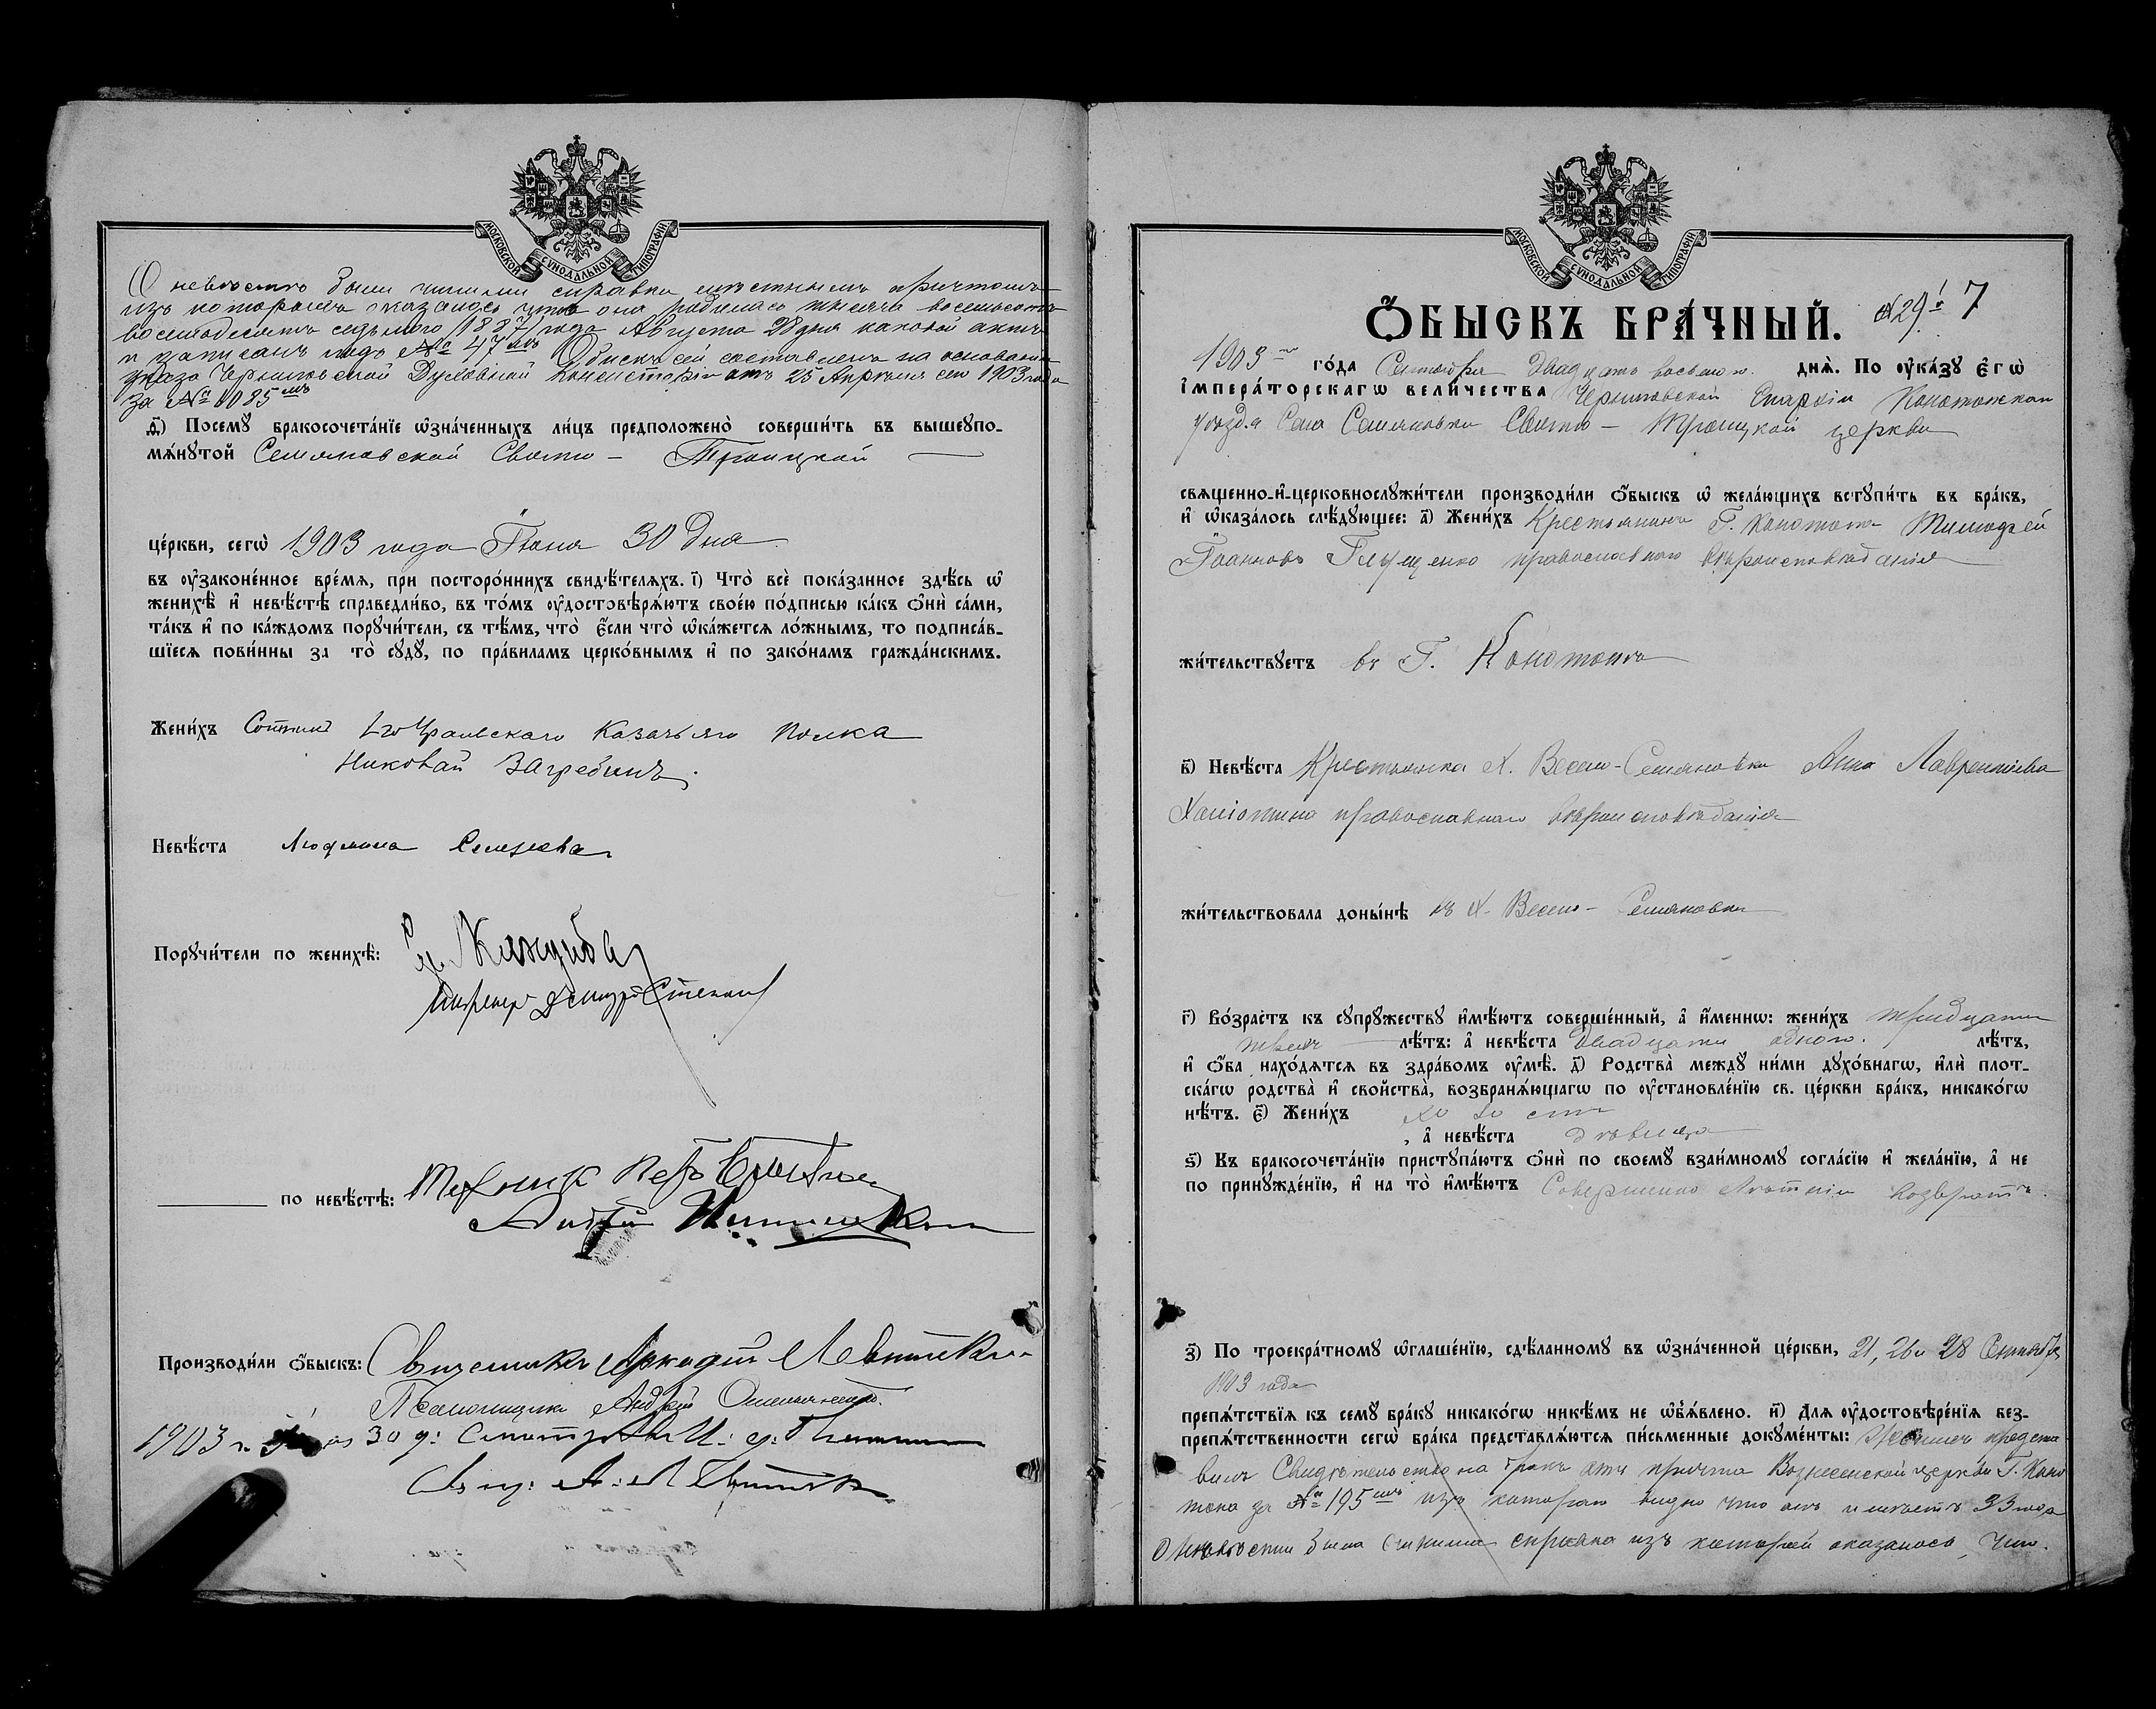 МОСКОВСКОЙ СѴНОДАЛЬНОЙ ТИПОГРАФІИ
О невѣстѣ были чинимы справки мѣстнымъ причтомъ
изъ которыхъ оказалось что она родилась тысяча восемьсотъ
восемьдесятъ седьмого /1887/ года Августа 28 дня каковой актъ
и записанъ подъ № 47мъ Обыскъ сей составленъ на основаніи
указа Черниговской Духовной Консисторіи отъ 25 Апрѣля сего 1903 года
за № 8085мъ
ѳ҃) Посемꙋ̀ бракосочета́нїе ѡ҆зна́ченныхъ ли́цъ предположено̀ соверши́ть въ вышеꙋпо-
мѧ́нꙋтой Семяновской Свято - Троицкой
це́ркви, сегѡ̀ 1903 года Іюня 30 дня
въ ᲂу҆законе́нное вре́мѧ, при посторо́ннихъ свидѣ́телѧхъ. і҃) Что̀ всѐ пока́занное здѣ́сь ѡ҆
женихѣ̀ и҆ невѣ́стѣ справедли́во, въ то́мъ ᲂу҆достовѣрѧ́ютъ свое́ю по́дписью ка́къ ѻ҆нѝ са́ми,
та́къ и҆ по ка́ждомъ порꙋчи́тели, съ тѣ́мъ, что̀ є҆́сли что̀ ѡ҆ка́жетсѧ ло́жнымъ, то подписа́в-
шїесѧ пови́нны за то̀ сꙋдꙋ̀, по пра́виламъ церко́внымъ и҆ по зако́намъ гражда́нскимъ.
Жени́хъ Сотникъ 1го Уральскаго Казачьяго полка
Николай Загребинъ
Невѣ́ста Людмила
Порꙋчи́тели по женихѣ̀:
по невѣ́стѣ: Техникъ
Андрей
Производи́ли ѻ҆́быскъ: Священникъ Аркадій Левитскій
Псаломщикъ Андрей
1903 г. 30 д:
Свящ: А:
МОСКОВСКОЙ СѴНОДАЛЬНОЙ ТИПОГРАФІИ
Ѻ҆́БЫСКЪ БРА́ЧНЫЙ. № 29й 7
1903го го́да Сентября двадцать восьмого днѧ̀. По ᲂу҆ка́зꙋ є҆гѡ̀
і҆мпера́торскагѡ вели́чества Черниговской Епархіи Конотопскаго
уѣзда Села Семяновки Свято - Троицкой церкви
свѧщенно-и҆-церковнослꙋжи́тели производи́ли ѻ҆́быскъ ѡ҆ жела́ющихъ встꙋпи́ть въ бра́къ,
и҆ ѡ҆каза́лось слѣ́дꙋющее: а҃) Жени́хъ Крестьянинъ Г. Конотопа Тимофѣй
Іоанновъ Глущенко православнаго вѣроисповѣданія
жи́тельствꙋетъ въ Г. Конотопѣ
в҃) Невѣ́ста Крестьянка Х. Весело-Семяновки Анна Лаврентіева
православнаго вѣроисповѣданія
жи́тельствовала доны́нѣ въ Х. Весело - Семяновки
г҃) Во́зрастъ къ сꙋпрꙋ́жествꙋ и҆мѣ́ютъ соверше́нный, а҆ и҆́менно: жени́хъ тридцати
трехъ лѣ́тъ: а҆ невѣ́ста двадцати одного. лѣ́тъ,
и҆ ѻ҆́ба нахо́дѧтсѧ въ здра́вомъ ᲂу҆мѣ̀. д҃) Родства̀ междꙋ̀ ни́ми дꙋхо́внагѡ, и҆лѝ плот-
ска́гѡ родства̀ и҆ сво́йства̀, возбранѧ́ющагѡ по ᲂу҆становле́нїю св. це́ркви бра́къ, никако́гѡ
нѣ́тъ. є҃) Жени́хъ холостъ
, а҆ невѣ́ста дѣвица
ѕ҃) Къ бракосочета́нїю пристꙋпа́ютъ ѻ҆нѝ по своемꙋ̀ взаи́мномꙋ согла́сїю и҆ жела́нїю, а҆ не
по принꙋжде́нїю, и҆ на то̀ и҆мѣ́ютъ Совершеннолѣтній возрастъ.
з҃) По троекра́тномꙋ ѡ҆глаше́нїю, сдѣ́ланномꙋ въ ѡ҆зна́ченной це́ркви, 21, 26 и 28 Сентября
1903 года
препѧ́тствїѧ къ семꙋ̀ бра́кꙋ никако́гѡ никѣ́мъ не ѡ҆б̾ѧ́влено. и҃) Длѧ ᲂу҆достовѣре́нїѧ без-
препѧ́тственности сегѡ̀ бра́ка представлѧ́ютсѧ пи́сьменные докꙋме́нты: Женихъ предста
вилъ Свидѣтельство на бракъ отъ причта Вознесенской церкви Г. Коно
топа за № 195мъ изъ котораго видно что онъ имѣетъ 33 года
О невѣстѣ была чинима справка изъ которой оказалось, что.